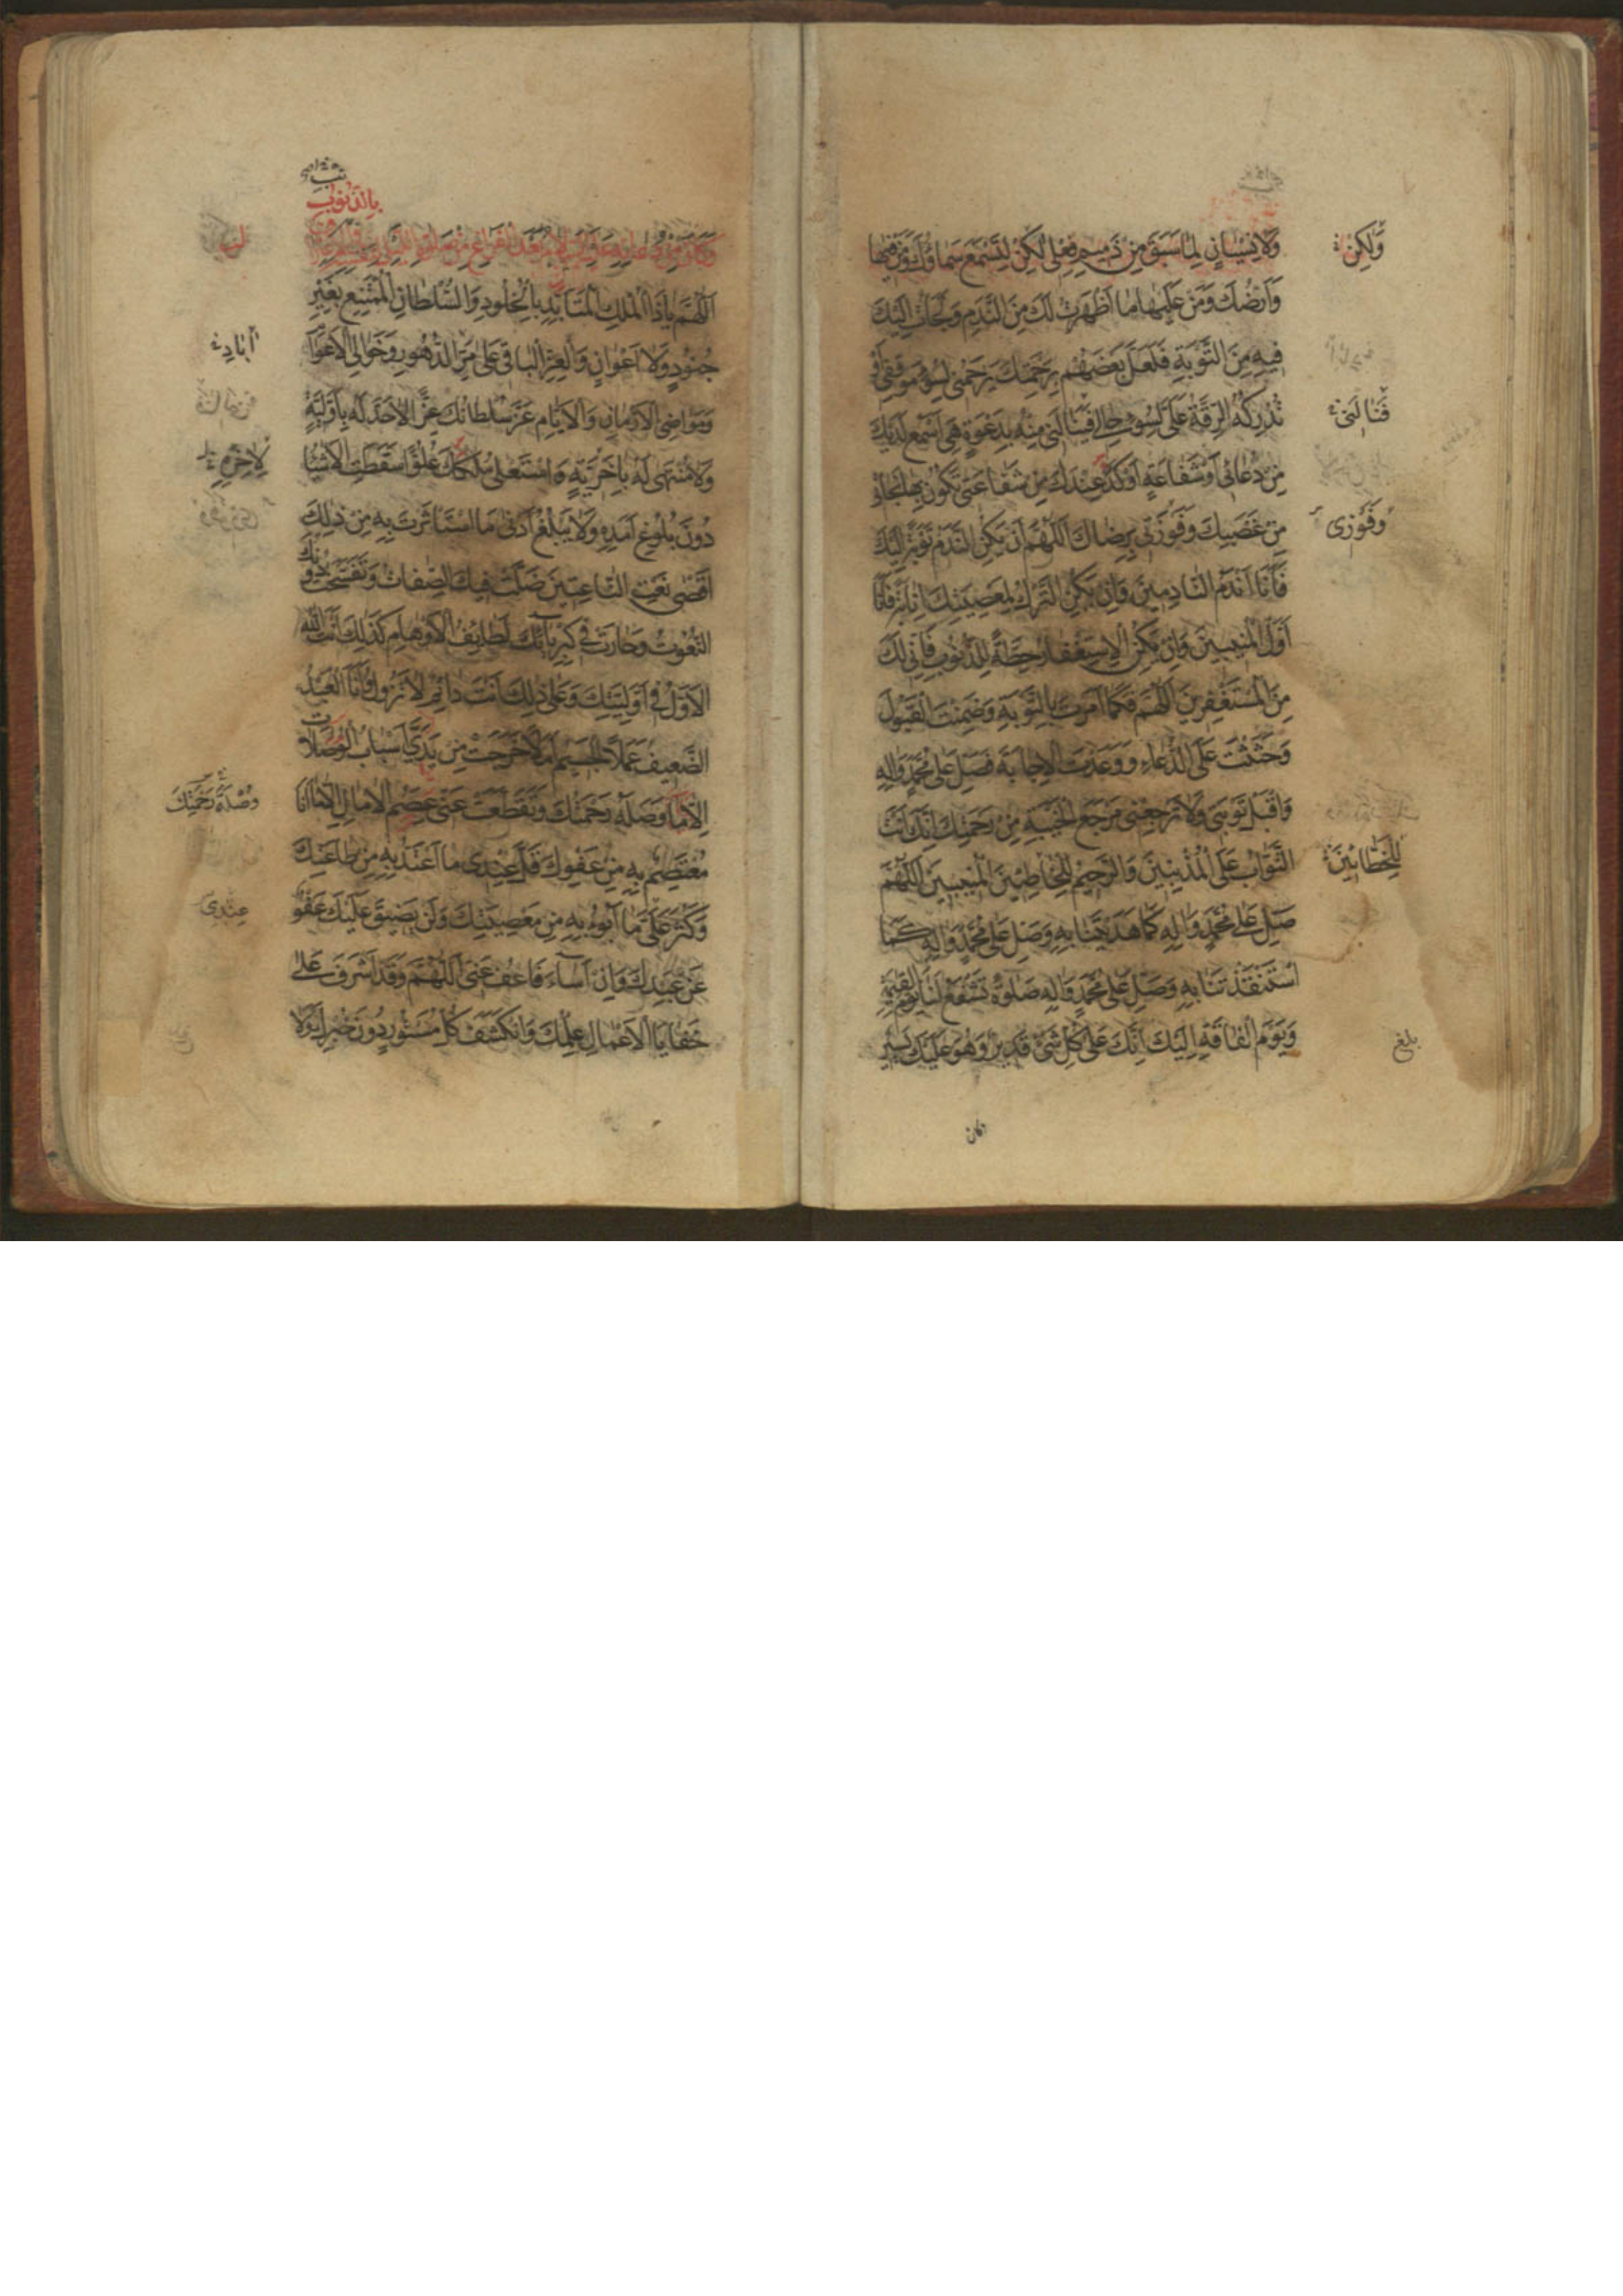 وَلَا نِسْيَانٍ لِمَا سَبَقَ مِنْ ذَمِيمِ فِعْلِي لَكِنْ لِتَسْمَعَ سَمَاؤُكَ وَمَنْ فِيهَا
وَلَكِنْ
وَأَرْضُكَ وَمَنْ عَلَيْهَا مَا أَظْهَرْتُ لَكَ مِنَ النَّدَمِ وَلَجَأْتُ إِلَيْكَ
فِيهِ مِنَ التَّوْبَةِ فَلَعَلَّ بَعْضَهُمْ بِرَحْمَتِكَ يَرْحَمُنِي لِسُوءِ مَوْقِفِي أَوْ
تُدْرِكُهُ الرِّقَّةُ عَلَيَّ لِسُوءِ حَالِي فَيَنَالَنِي مِنْهُ بِدَعْوَةٍ هِيَ أَسْمَعُ لَدَيْكَ
فَتَنَالَنِي
مِنْ دُعَائِي أَوْ شَفَاعَةٍ أَوْكَدُ عِنْدَكَ مِنْ شَفَاعَتِي تَكُونُ بِهَا نَجَاتِي
مِنْ غَضَبِكَ وَفَوْزَتِي بِرِضَاكَ اللَّهُمَّ إِنْ يَكُنِ النَّدَمُ تَوْبَةً إِلَيْكَ
وَفَوْزِي
فَأَنَا أَنْدَمُ النَّادِمِينَ وَإِنْ يَكُنِ التَّرْكُ لِمَعْصِيَتِكَ إِنَابَةً فَأَنَا
أَوَّلُ الْمُنِيبِينَ وَإِنْ يَكُنِ الِاسْتِغْفَارُ حِطَّةً لِلذُّنُوبِ فَإِنِّي لَكَ
مِنَ الْمُسْتَغْفِرِينَ اللَّهُمَّ فَكَمَا أَمَرْتَ بِالتَّوْبَةِ وَضَمِنْتَ الْقَبُولَ
وَحَثَثْتَ عَلَى الدُّعَاءِ وَوَعَدْتَ الْإِجَابَةَ فَصَلِّ عَلَى مُحَمَّدٍ وَآلِهِ
وَاقْبَلْ تَوْبَتِي وَلَا تَرْجِعْنِي مَرْجَعَ الْخَيْبَةِ مِنْ رَحْمَتِكَ إِنَّكَ أَنْتَ
التَّوَّابُ عَلَى الْمُذْنِبِينَ وَالرَّحِيمُ لِلْخَاطِئِينَ الْمُنِيبِينَ اللَّهُمَّ
لِلْخَطَّائِينَ
صَلِّ عَلَى مُحَمَّدٍ وَآلِهِ كَمَا هَدَيْتَنَا بِهِ وَصَلِّ عَلَى مُحَمَّدٍ وَآلِهِ كَمَا
اسْتَنْقَذْتَنَا بِهِ وَصَلِّ عَلَى مُحَمَّدٍ وَآلِهِ صَلَوةً تَشْفَعُ لَنَا يَوْمَ الْقِيَمَةِ
وَيَوْمَ الْفَاقَةِ إِلَيْكَ إِنَّكَ عَلَى كُلِّ شَيْءٍ قَدِيرٌ وَهُوَ عَلَيْكَ يَسِيرٌ
بلغ
وكان
بِالذُّنُوبِ
وَكَانَ مِنْ دُعَائِهِ عَلَيْهِ السَّلَامُ بَعْدَ الْفَرَاغِ مِنْ صَلَوةِ اللَّيْلِ
اللَّهُمَّ يَا ذَا الْمُلْكِ الْمُتَأَبِّدِ بِالْخُلُودِ وَالسُّلْطَانِ الْمُمْتَنِعِ بِغَيْرِ
جُنُودٍ وَلَا أَعْوَانٍ وَالْعِزِّ الْبَاقِي عَلَى مَرِّ الدُّهُورِ وَخَوَالِي الْأَعْوَامِ
وَمَوَاضِي الْأَزْمَانِ وَالْأَيَّامِ عَزَّ سُلْطَانُكَ عِزًّا لَا حَدَّ لَهُ بِأَوَّلِيَّةٍ
وَلَا مُنْتَهَى لَهُ بِآخِرِيَّةٍ وَاسْتَعْلَى مُلْكُكَ عُلُوًّا سَقَطَتِ الْأَشْيَاءُ
دُونَ بُلُوغِ أَمَدِهِ وَلَا يَبْلُغُ أَدْنَى مَا اسْتَأْثَرْتَ بِهِ مِنْ ذَلِكَ
أَقْصَى نَعْتِ النَّاعِتِينَ ضَلَّتْ فِيكَ الصِّفَاتُ وَتَفَسَّخَتْ دُونَكَ
النُّعُوتُ وَحَارَتْ فِي كِبْرِيَائِكَ لَطَائِفُ الْأَوْهَامِ كَذَلِكَ أَنْتَ اللَّهُ
الْأَوَّلُ فِي أَوَّلِيَّتِكَ وَعَلَى ذَلِكَ أَنْتَ دَائِمٌ لَا تَزُولُ وَأَنَا الْعَبْدُ
الضَّعِيفُ عَمَلًا الْجَسِيمُ أَمَلًا خَرَجَتْ مِنْ يَدِي أَسْبَابُ الْوُصُلَاتِ
إِلَّا مَا وَصَلَهُ رَحْمَتُكَ وَتَقَطَّعَتْ عَنِّي عِصَمُ الْآمَالِ إِلَّا مَا أَنَا
وُصْلَةُ رَحْمَتِكَ
مُعْتَصِمٌ بِهِ مِنْ عَفْوِكَ قَلَّ عِنْدِي مَا أَعْتَدُّ بِهِ مِنْ طَاعَتِكَ
وَكَثُرَ عَلَيَّ مَا أَبُوءُ بِهِ مِنْ مَعْصِيَتِكَ وَلَنْ يَضِيقَ عَلَيْكَ عَفْوٌ
عِنْدِي
عَنْ عَبْدِكَ وَإِنْ أَسَاءَ فَاعْفُ عَنِّي اللَّهُمَّ وَقَدْ أَشْرَفَ عَلَى
خَفَايَا الْأَعْمَالِ عِلْمُكَ وَانْكَشَفَ كُلُّ مَسْتُورٍ دُونَ خُبْرِكَ وَلَا